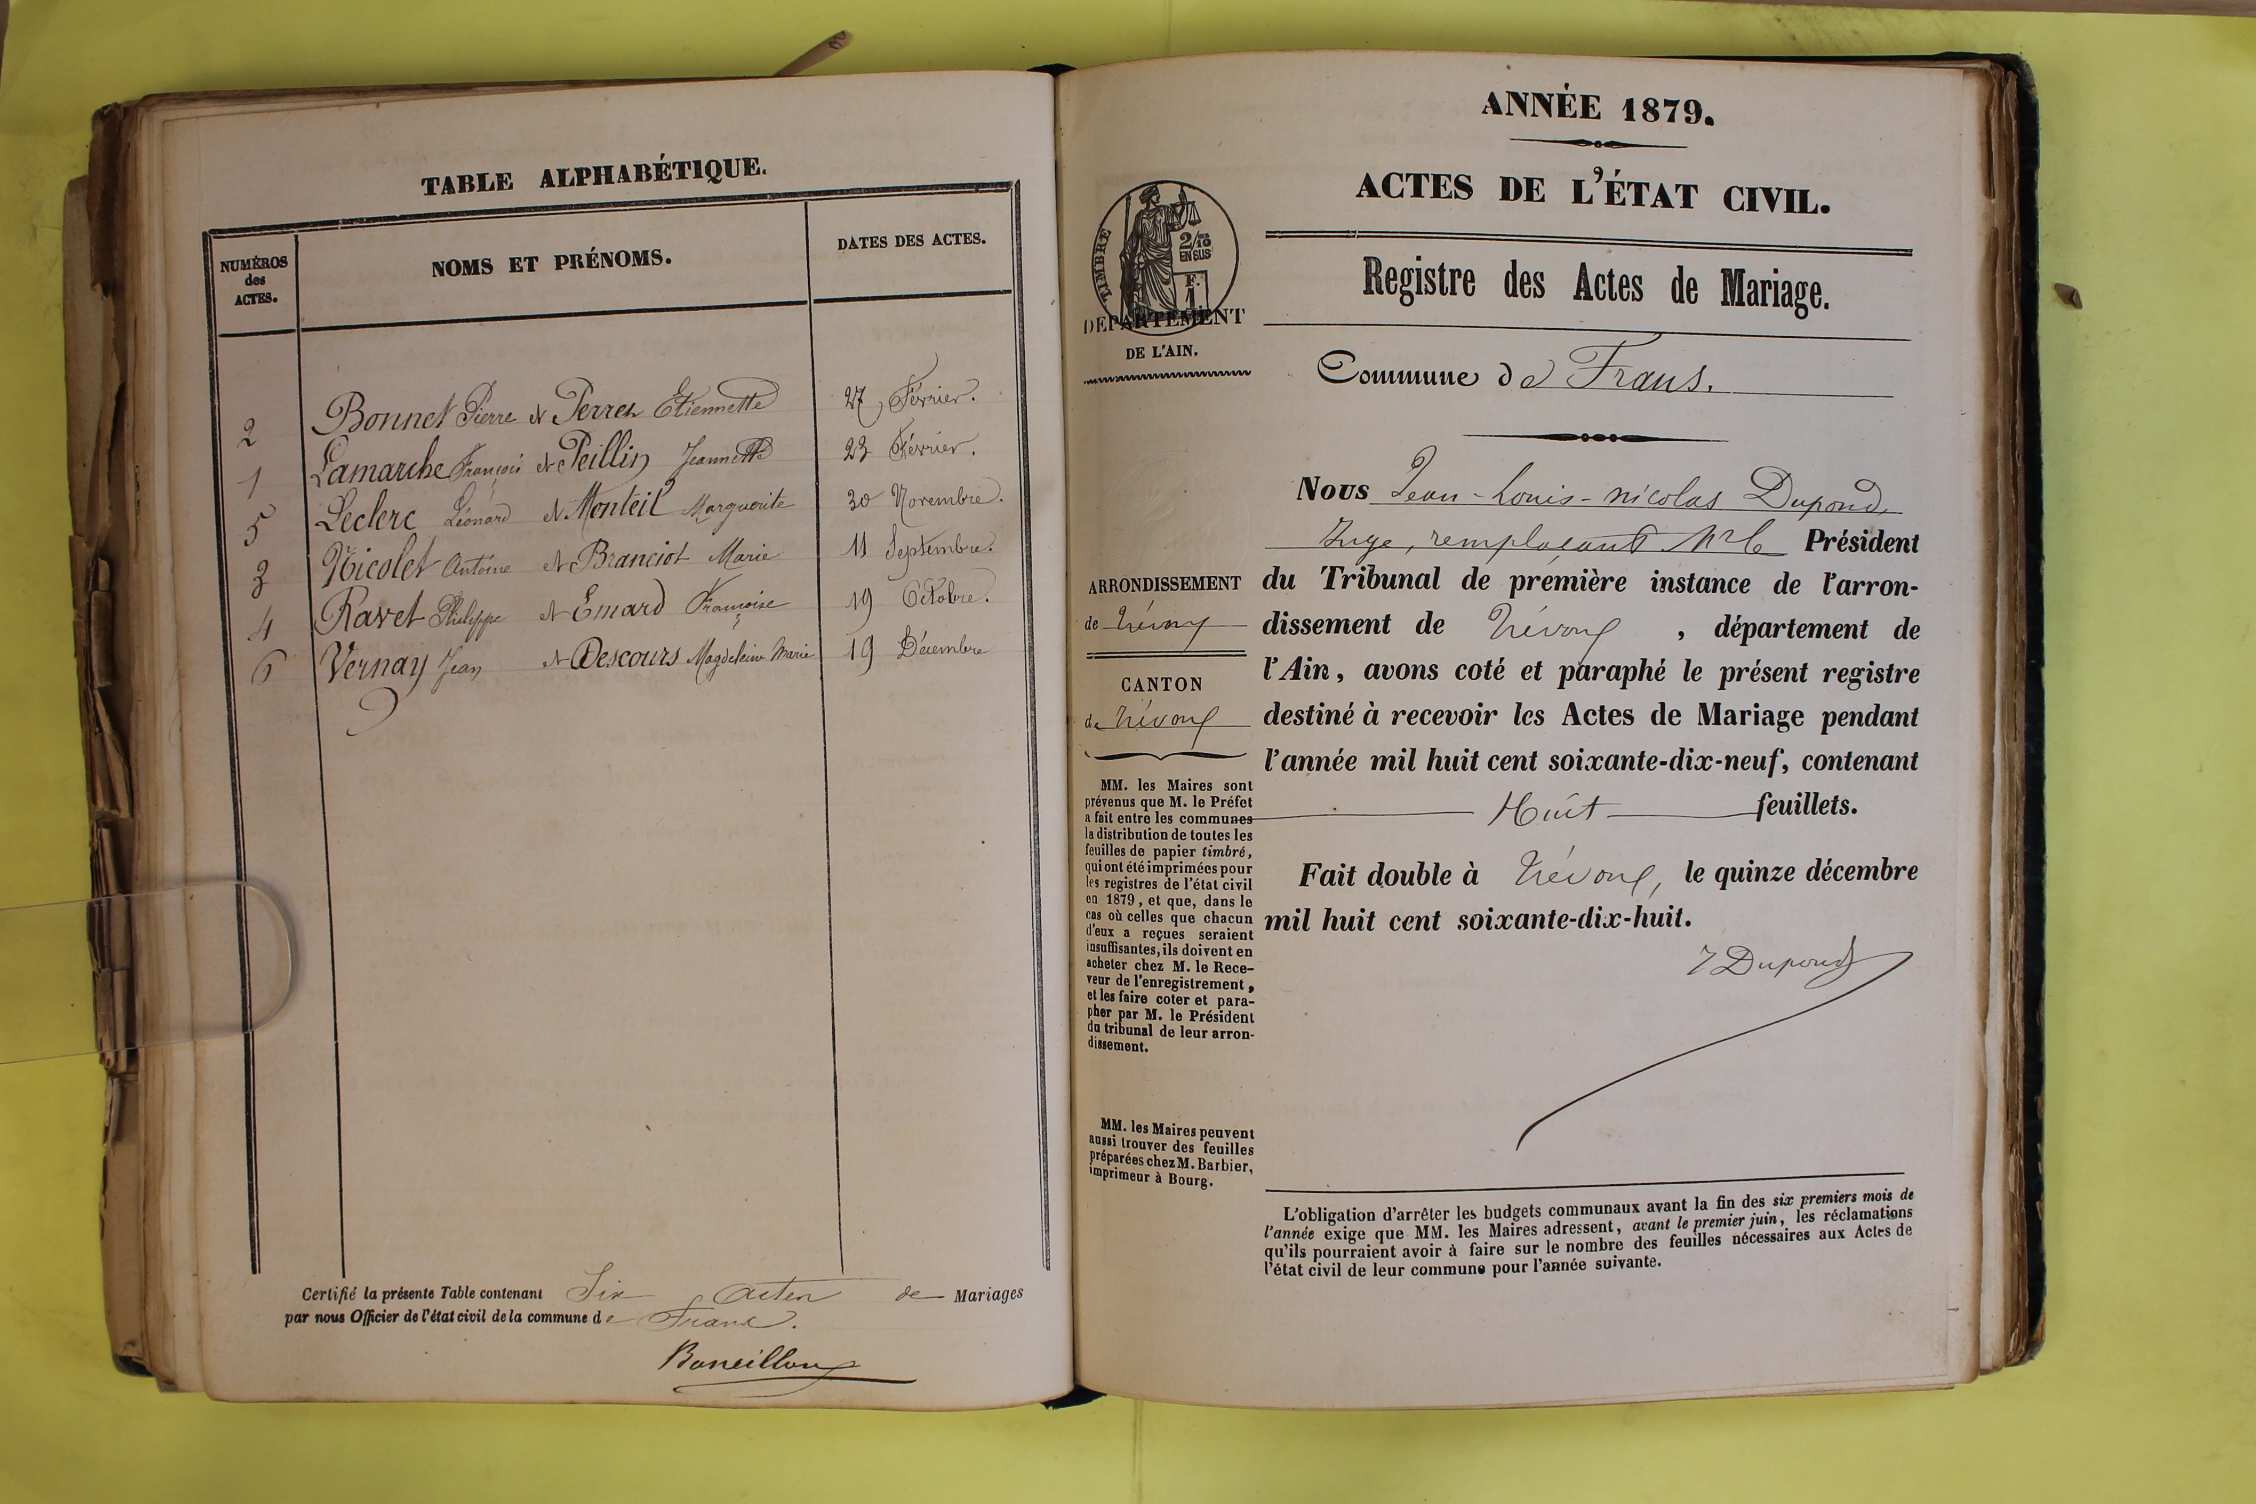 TABLE ALPHABÉTIQUE.
NUMÉROS des ACTES.
NOMS ET PRÉNOMS.
DATES DES ACTES.
2 Bonnet Pierre et Perret Etiennette 27 Février.
1 Lamarche François et Peillin Jeannette 23 Février.
5 Leclerc Léonard et Monteil Marguerite 30 Novembre.
3 Nicolet Antoine et Branciot Marie 11 Septembre.
4 Ravet Philippe et Emard Françoise 19 Octobre.
6 Vernay Jean et Descours Magdeleine Marie 19 Décembre
Certifié la présente Table contenant Six actes de Mariages
par nous Officier de l'état civil de la commune de Frans.
ANNÉE 1879.
ACTES DE L'ÉTAT CIVIL.
Registre des Actes de Mariage.
TIMBRE
2/10 EN SUS
F. 1
DÉPARTEMENT
DE L'AIN.
Commune de Frans.
ARRONDISSEMENT
de Trévoux
CANTON
de Trévoux
MM. les Maires sont
prévenus que M. le Préfet
a fait entre les communes
la distribution de toutes les
feuilles de papier timbré,
qui ont été imprimées pour
les registres de l'état civil
en 1879, et que, dans le
cas où celles que chacun
d'eux a reçues seraient
insuffisantes, ils doivent en
acheter chez M. le Rece-
veur de l'enregistrement,
et les faire coter et para-
pher par M. le Président
du tribunal de leur arron-
dissement.
MM. les Maires peuvent
aussi trouver des feuilles
préparées chez M. Barbier,
imprimeur à Bourg.
Nous Jean-Louis-Nicolas Dupond,
Juge, remplaçant Mr le Président
du Tribunal de prémière instance de l'arron-
dissement de Trévoux, département de
l'Ain, avons coté et paraphé le présent registre
destiné à recevoir les Actes de Mariage pendant
l'année mil huit cent soixante-dix-neuf, contenant
Huit feuillets.
Fait double à Trévoux, le quinze décembre
mil huit cent soixante-dix-huit.
Dupond
L'obligation d'arrêter les budgets communaux avant la fin des six premiers mois de
l'année exige que MM. les Maires adressent, avant le premier juin, les réclamations
qu'ils pourraient avoir à faire sur le nombre des feuilles nécessaires aux Actes de
l'état civil de leur commune pour l'année suivante.